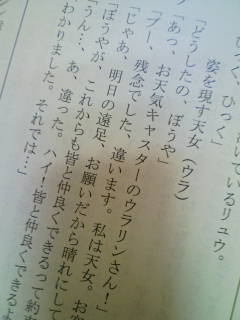 ひっく、ひっく
いているリュウ。
姿を現す天女（ウラ）
「どうしたの、ぼうや」
「あっ、お天気キャスターのウラリンさん！」
「ブー、残念でした、違います。私は天女。お空
「じゃあ、明日の遠足、お願いだから晴れにして
「ぼうやが、これからも皆と仲良くできるって約束
「うん…、あ、違った。ハイ！皆と仲良くできるよ
わかりました。それでは…」